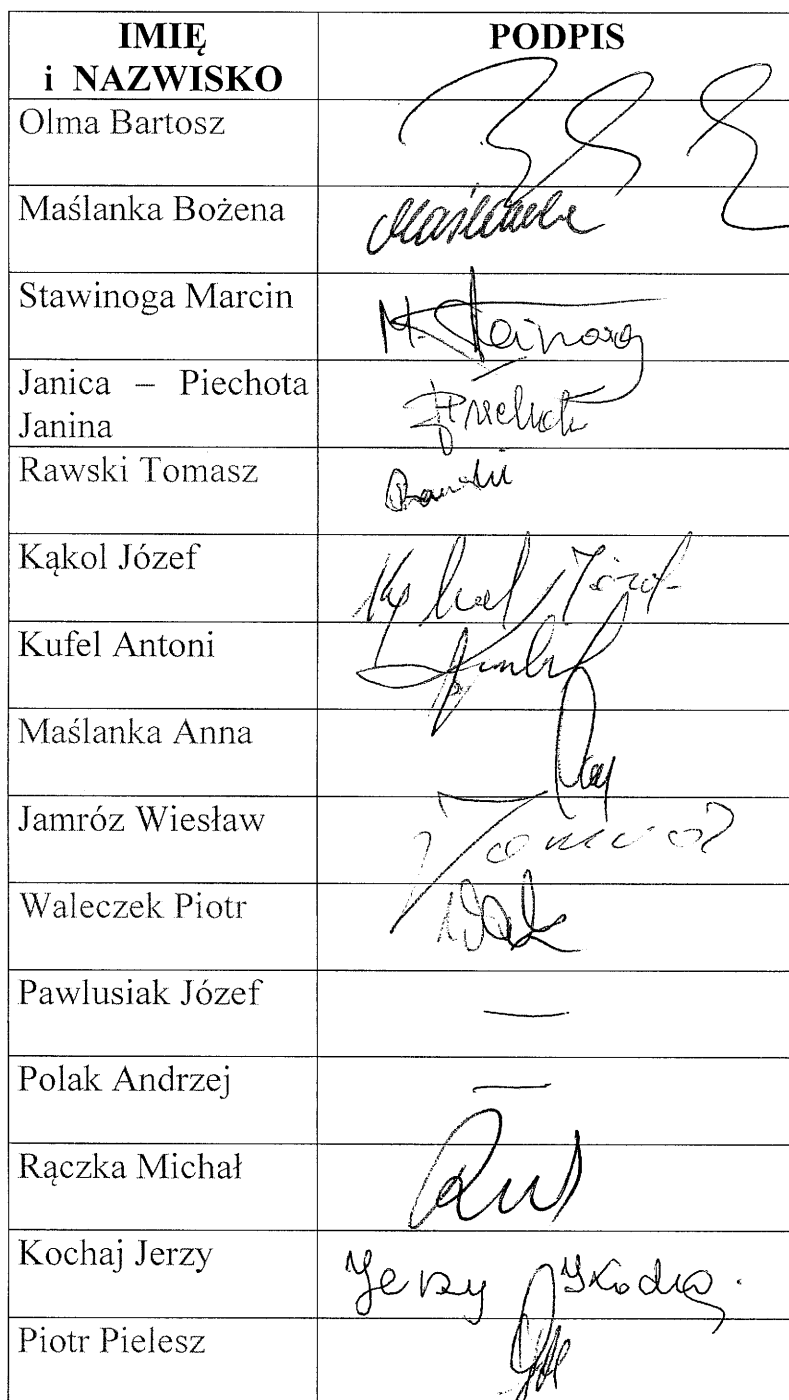 IMIĘ
i NAZWISKO
PODPIS
Olma Bartosz
Maślanka Bożena
Maślanka
Stawinoga Marcin
M.
Janica – Piechota
Janina
Rawski Tomasz
Rawski
Kąkol Józef
Kąkol Józef
Kufel Antoni
Maślanka Anna
Jamróz Wiesław
Jamróz
Waleczek Piotr
Pawlusiak Józef
—
Polak Andrzej
—
Rączka Michał
Kochaj Jerzy
Jerzy
Piotr Pielesz